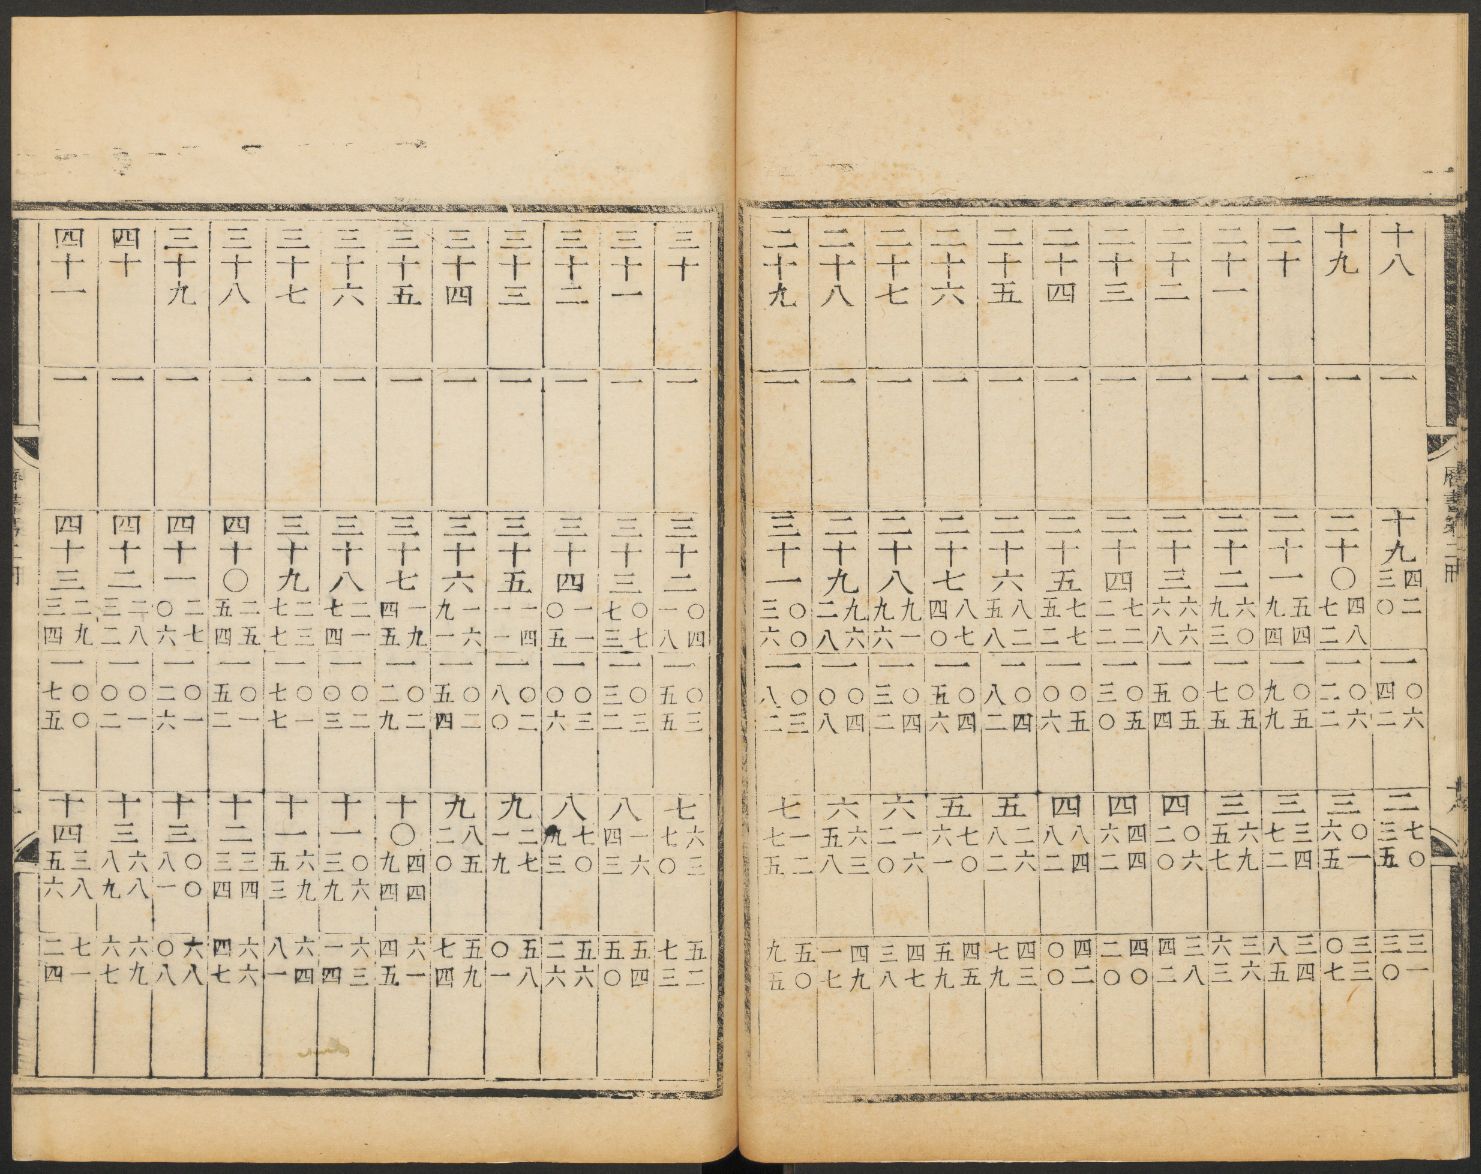 曆書第二冊
十八 一 十九 四二 三〇 一 〇六 四二 二 七〇 三五 三一 三〇
十九 一 二十〇 四八 七二 一 〇六 二二 三 〇一 六五 三三 〇七
二十 一 二十一 五四 九四 一 〇五 九九 三 三四 七二 三四 八五
二十一 一 二十二 六〇 九三 一 〇五 七五 三 六九 五七 三六 六三
二十二 一 二十三 六六 六八 一 〇五 五四 四 〇六 二〇 三八 四二
二十三 一 二十四 七二 二二 一 〇五 三〇 四 四四 六二 四〇 二〇
二十四 一 二十五 七七 五二 一 〇五 〇六 四 八四 八二 四二 〇〇
二十五 一 二十六 八二 五八 一 〇四 八二 五 二六 八二 四三 七九
二十六 一 二十七 八七 四〇 一 〇四 五六 五 七〇 六一 四五 五九
二十七 一 二十八 九一 九六 一 〇四 三二 六 一六 二〇 四七 三八
二十八 一 二十九 九六 二八 一 〇四 〇八 六 六三 五八 四九 一七
二十九 一 三十一 〇〇 三六 一 〇三 八二 七 一二 七五 五〇 九五
三十 一 三十二 〇四 一八 一 〇三 五五 七 六三 七〇 五二 七三
三十一 一 三十三 〇七 七三 一 〇三 三二 八 一六 四三 五四 五〇
三十二 一 三十四 一一 〇五 一 〇三 〇六 八 七〇 九三 五六 二六
三十三 一 三十五 一四 一一 一 〇二 八〇 九 二七 一九 五八 〇一
三十四 一 三十六 一六 九一 一 〇二 五四 九 八五 二〇 五九 七四
三十五 一 三十七 一九 四五 一 〇二 二九 十〇 四四 九四 六一 四五
三十六 一 三十八 二一 七四 一 〇二 〇三 十一 〇六 三九 六三 一四
三十七 一 三十九 二三 七七 一 〇一 七七 十一 六九 五三 六四 八一
三十八 一 四十〇 二五 五四 一 〇一 五二 十二 三四 三四 六六 四七
三十九 一 四十一 二七 〇六 一 〇一 二六 十三 〇〇 八一 六八 〇八
四十 一 四十二 二八 三二 一 〇一 〇二 十三 六八 八九 六九 六七
四十一 一 四十三 二九 三四 一 〇〇 七五 十四 三八 五六 七一 二四